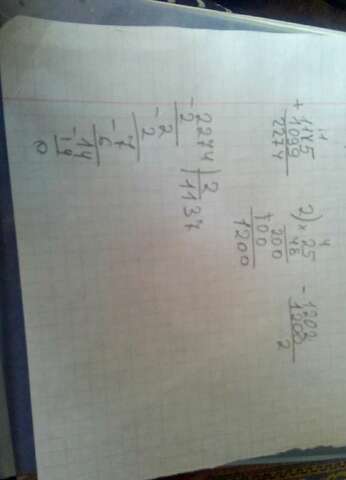 1 1
+ 1175
1099
2274
4
2) × 25
48
200
100
1200
- 1202
1200
2
- 2274 | 2
2 1137
- 2
2
- 7
6
- 14
14
0